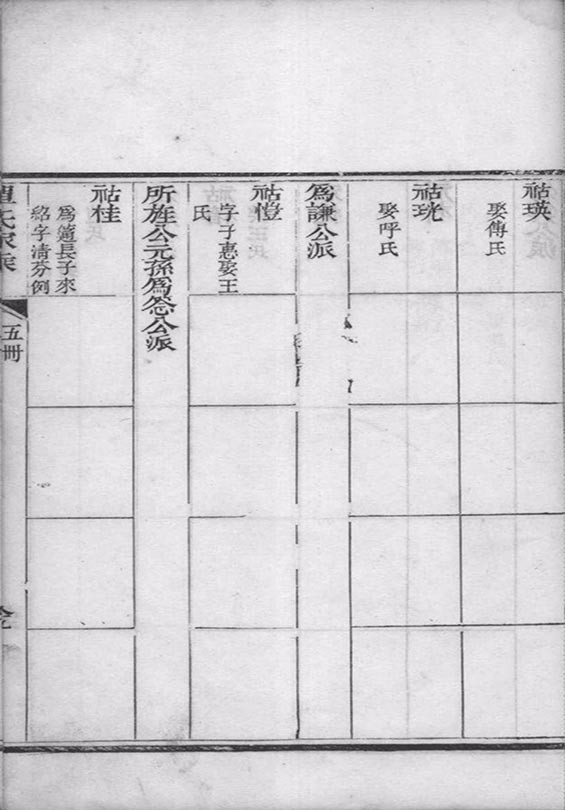 祜瑛
娶傅氏
祜珖
娶呼氏
爲謙公派
祜愷
字子惠娶王
氏
所旌公元孫爲忩公派
祜桂
爲籚長子來
紹字清芬例
氏家乘
五冊